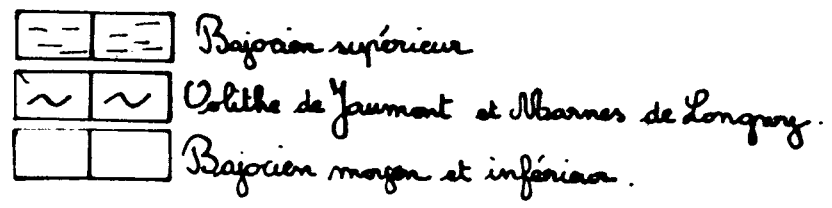 Bajocien supérieur
Oolithe de Jaumont et Marnes de Longwy.
Bajocien moyen et inférieur.